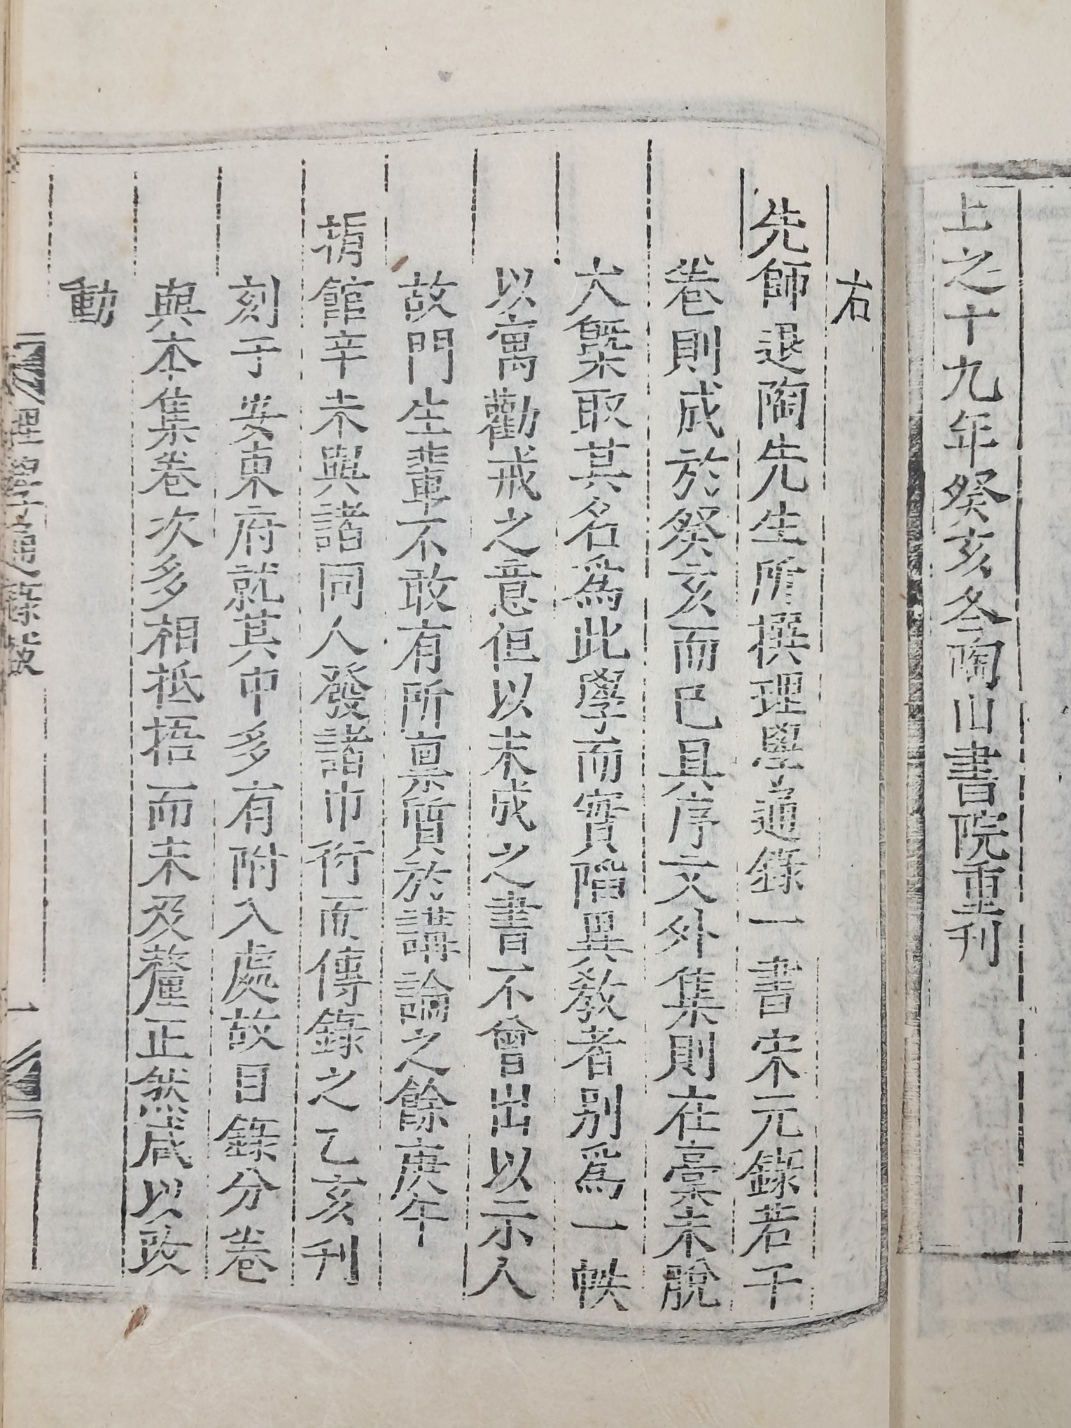 上之十九年癸亥冬陶山書院重刊
右
先師退陶先生所撰理學通錄一書宋元錄若干
卷則成於癸亥而已具序文外集則在藁未脫
大槩取其名爲此學而實陷異敎者別爲一帙
以寓勸戒之意但以未成之書不曾出以示人
故門生輩不敢有所稟質於講論之餘庚午
捐館辛未與諸同人發諸巾衍而傳錄之乙亥刊
刻于安東府就其中多有附入處故目錄分卷
與本集卷次多相抵捂而未及釐正然咸以改
動
理學通錄跋
一